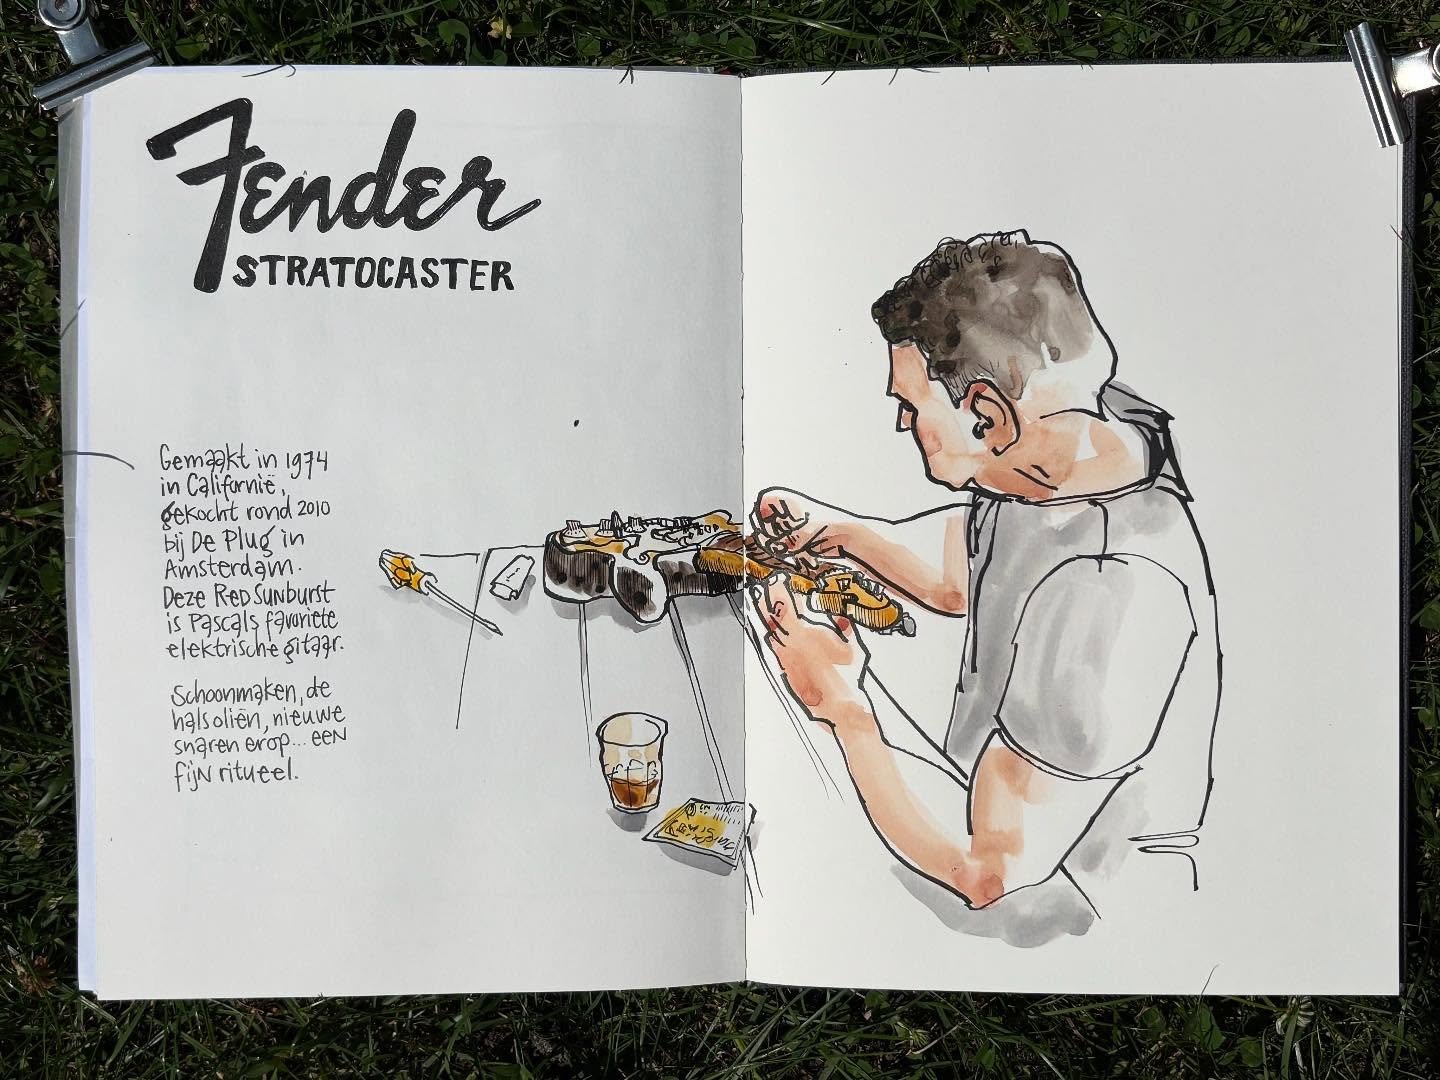 Fender
STRATOCASTER
Gemaakt in 1974
in Californië,
gekocht rond 2010
bij De Plug in
Amsterdam.
Deze Red Sunburst
is Pascals favoriete
elektrische gitaar.
Schoonmaken, de
hals oliën, nieuwe
snaren erop... een
fijn ritueel.